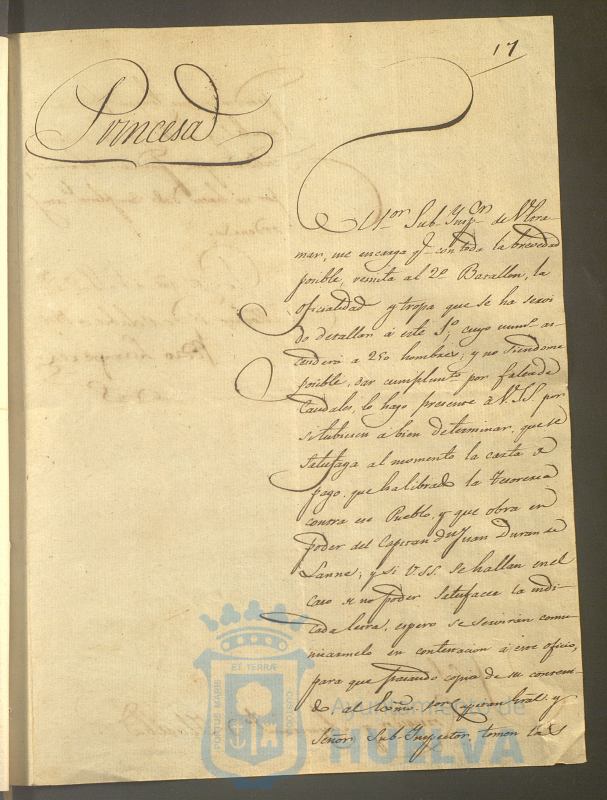 17
Princesa
El Sor Sub Ynspor de Ultra-
mar, me encarga qe con toda la brevedad
posible, remita al 2o Batallon, la
oficialidad y tropa que se ha servi
do detallar á este Po cuyo numo as-
cenderá á 250 hombres; y no siendome
posible, dar cumplimto por falta de
Caudales, lo hago presente á V.SS. por
si tubiesen á bien determinar, que se
satisfaga al momento la carta de
pago, que ha librado la Tesoreria
contra ese Pueblo, y que obra en
poder del Capitan Dn Juan Duran de
Lanne; y si V.SS. se hallan en el
caso de no poder satisfacer la indi
cada letra, espero se serviran comu
nicarmelo en contestacion á este oficio,
para que pasando copia de su conteni-
do, al Exmo Sor Capitan Gral y
Señor Sub Ynspector, tomen las
ET TERRAE
PORTUS MARIS
CUSTODIA
Ayuntamiento de
HUELVA